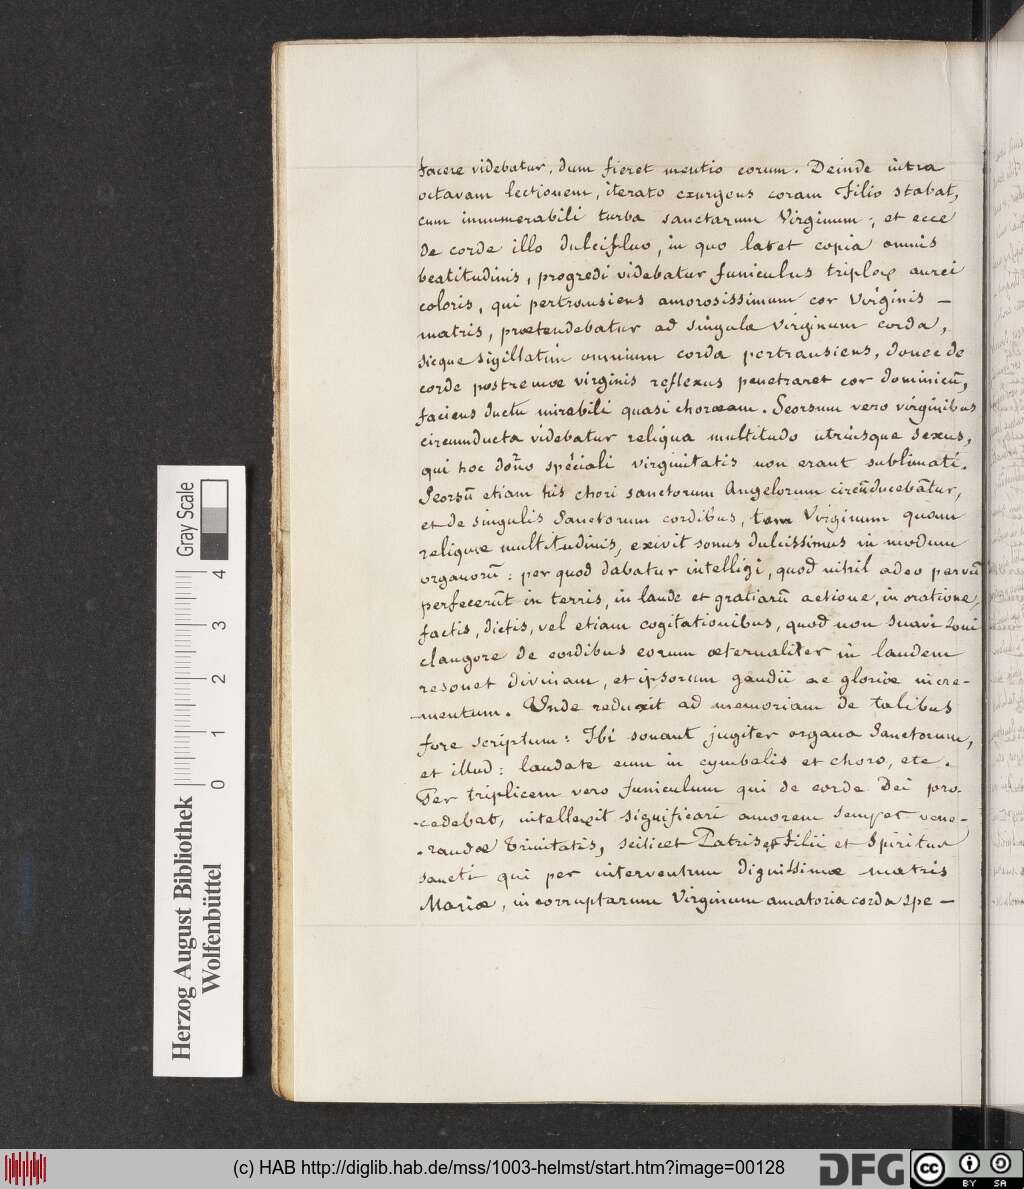 facere videbatur, dum fieret mentio eorum. Deinde intra
octavam lectionem, iterato exurgens coram Filio stabat,
cum innumerabili turba sanctarum Virginum; et ecce
de corde illo dulcifluo, in quo latet copia omnis
beatitudinis, progredi videbatur funiculus triplex aurei
coloris, qui pertransiens amorosissimum cor Virginis —
matris, prætendebatur ad singula virginum corda,
sicque sigillatim omnium corda pertransiens, donec de
corde postremæ virginis reflexus penetraret cor dominicū,
faciens ductu mirabili quasi choræam. Seorsum vero virginibus
circumducta videbatur reliqua multitudo utriusque sexus,
qui hoc dono speciali virginitatis non erant sublimati.
Seorsū etiam his chori sanctorum Angelorum circūducebantur,
et de singulis Sanctorum cordibus, tam Virginum quam
reliquæ multitudinis, exivit sonus dulcissimus in modum
organorū: per quod dabatur intelligi, quod nihil adeo parvū
perfecerūt in terris, in laude et gratiarū actione, in oratione,
factis, dictis, vel etiam cogitationibus, quod non suavi soni
clangore de cordibus eorum æternaliter in laudem
resonet divinam, et ipsorum gaudii ac gloriæ incre-
-mentum. Unde reduxit ad memoriam de talibus
fore scriptum: Ibi sonant jugiter organa Sanctorum,
et illud: laudate eum in cymbalis et choro, etc.
Per triplicem vero funiculum qui de corde Dei pro-
-cedebat, intellexit significari amorem semper vene-
-randæ Trinitatis, scilicet Patris et Filii et Spiritus
sancti qui per interventum dignissimæ matris
Mariæ, incorruptarum Virginum amatoria corda spe —
Gray Scale
0 1 2 3 4
Herzog August Bibliothek
Wolfenbüttel
(c) HAB http://diglib.hab.de/mss/1003-helmst/start.htm?image=00128
DFG
cc BY SA